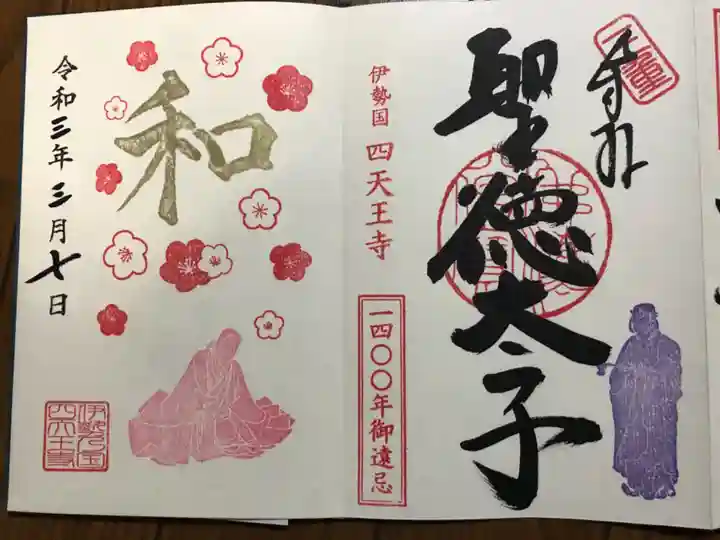 奉拝
聖徳太子
伊勢国 四天王寺
一四〇〇年御遠忌
和
令和三年三月七日